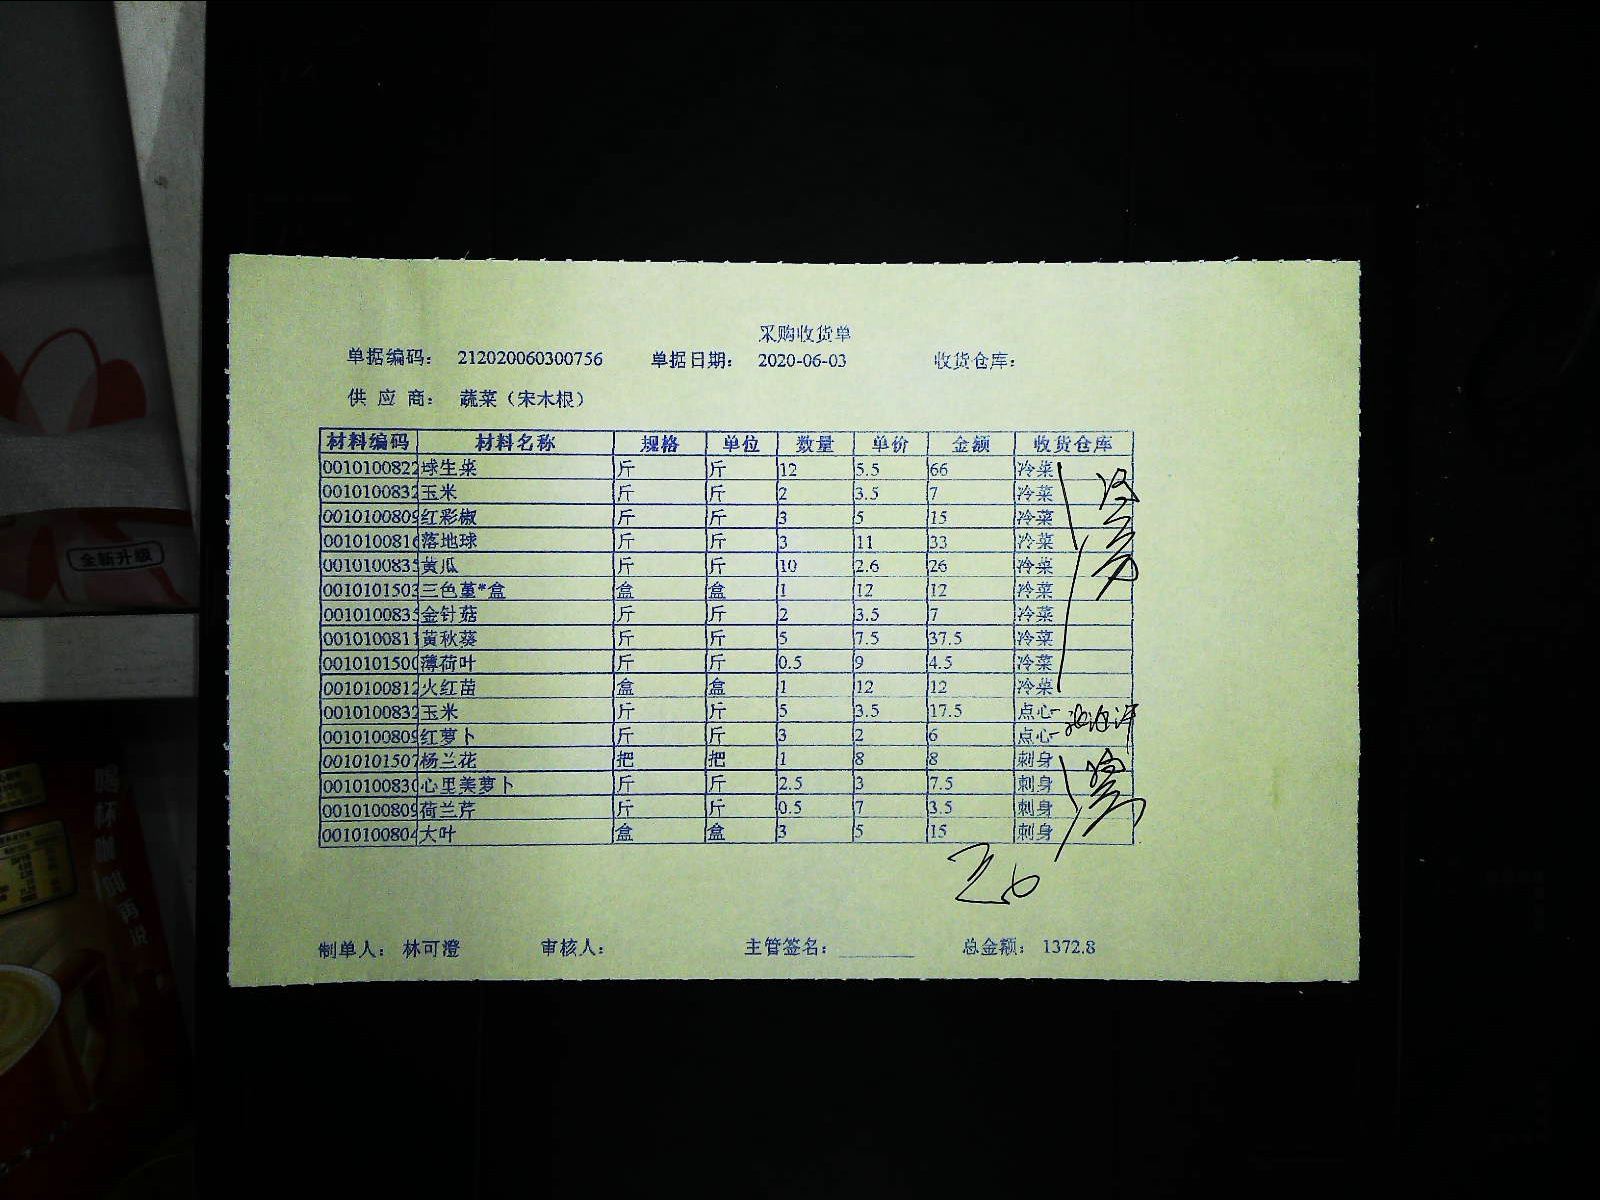 采购收货单
单据编码： 212020060300756 单据日期： 2020-06-03 收货仓库：
供 应 商： 蔬菜（宋木根）
材料编码 材料名称 规格 单位 数量 单价 金额 收货仓库
0010100822 球生菜 斤 斤 12 5.5 66 冷菜
0010100832 玉米 斤 斤 2 3.5 7 冷菜
0010100809 红彩椒 斤 斤 3 5 15 冷菜
0010100816 落地球 斤 斤 3 11 33 冷菜
0010100835 黄瓜 斤 斤 10 2.6 26 冷菜
0010101503 三色堇*盒 盒 盒 1 12 12 冷菜
0010100835 金针菇 斤 斤 2 3.5 7 冷菜
0010100811 黄秋葵 斤 斤 5 7.5 37.5 冷菜
0010101500 薄荷叶 斤 斤 0.5 9 4.5 冷菜
0010100812 火红苗 盒 盒 1 12 12 冷菜
0010100832 玉米 斤 斤 5 3.5 17.5 点心
0010100809 红萝卜 斤 斤 3 2 6 点心
0010101507 杨兰花 把 把 1 8 8 刺身
0010100830 心里美萝卜 斤 斤 2.5 3 7.5 刺身
0010100809 荷兰芹 斤 斤 0.5 7 3.5 刺身
0010100804 大叶 盒 盒 3 5 15 刺身
制单人： 林可澄 审核人： 主管签名： 总金额： 1372.8
全新升级
喝杯咖啡再说